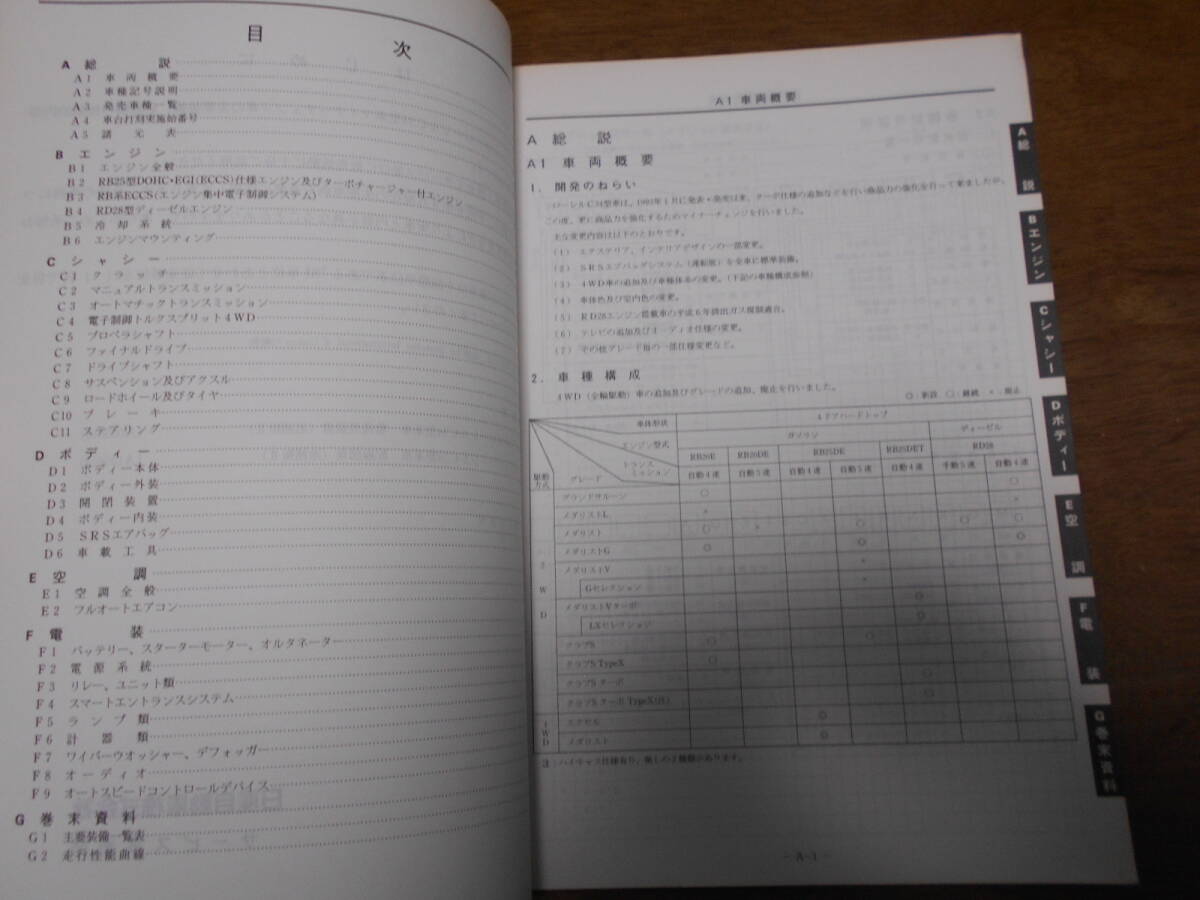 目次
A 総説
A1 車両概要
A2 車種記号説明
A3 発売車種一覧
A4 車台打刻実施始番号
A5 諸元表
B エンジン
B1 エンジン全般
B2 RB25型DOHC・EGI(ECCS)仕様エンジン及びターボチャージャー付エンジン
B3 RB系ECCS(エンジン集中電子制御システム)
B4 RD28型ディーゼルエンジン
B5 冷却系統
B6 エンジンマウンティング
C シャシー
C1 クラッチ
C2 マニュアルトランスミッション
C3 オートマチックトランスミッション
C4 電子制御トルクスプリット4WD
C5 プロペラシャフト
C6 ファイナルドライブ
C7 ドライブシャフト
C8 サスペンション及びアクスル
C9 ロードホイール及びタイヤ
C10 ブレーキ
C11 ステアリング
D ボディー
D1 ボディー本体
D2 ボディー外装
D3 開閉装置
D4 ボディー内装
D5 SRSエアバッグ
D6 車載工具
E 空調
E1 空調全般
E2 フルオートエアコン
F 電装
F1 バッテリー、スターターモーター、オルタネーター
F2 電源系統
F3 リレー、ユニット類
F4 スマートエントランスシステム
F5 ランプ類
F6 計器類
F7 ワイパーウオッシャー、デフォッガー
F8 オーディオ
F9 オートスピードコントロールデバイス
G 巻末資料
G1 主要装備一覧表
G2 走行性能曲線
A1 車両概要
A 総説
A1 車両概要
1. 開発のねらい
ローレルC34型車は、1993年1月に発表・発売以来、ターボ仕様の追加などを行い商品力の強化を行って来ましたが、
この度、更に商品力を強化するためのマイナーチェンジを行いました。
主な変更内容は以下のとおりです。
(1) エクステリア、インテリアデザインの一部変更。
(2) SRSエアバッグシステム(運転席)を全車に標準装備。
(3) 4WD車の追加及び車種体系の変更。(下記の車種構成参照)
(4) 車体色及び室内色の変更。
(5) RD28エンジン搭載車の平成6年排出ガス規制適合。
(6) テレビの追加及びオーディオ仕様の変更。
(7) その他グレード毎の一部仕様変更など。
2. 車種構成
4WD(全輪駆動)車の追加及びグレードの追加、廃止を行いました。
◎:新設 ○:継続 ×:廃止
車体形状 4ドアハードトップ
エンジン型式 ガソリン ディーゼル
RB20E RB20DE RB25DE RB25DET RD28
トランスミッション
駆動方式 グレード 自動4速 自動5速 自動4速 自動5速 自動4速 手動5速 自動4速
グランドサルーン ○ ○
メダリストL × ×
メダリスト ○ × ○ ○ ○
メダリストG ◎ ◎ ◎
メダリストV ×
Gセレクション ×
メダリストVターボ ○
LXセレクション ◎
クラブS ○ ○
クラブS TypeX ○
クラブSターボ ○
クラブSターボ TypeX
2WD
4WD
エクセル ◎
メダリスト ◎
3:ハイキャス仕様有り、無しの2種類があります。
－A-1－
A 総説
B エンジン
C シャシー
D ボディー
E 空調
F 電装
G 巻末資料